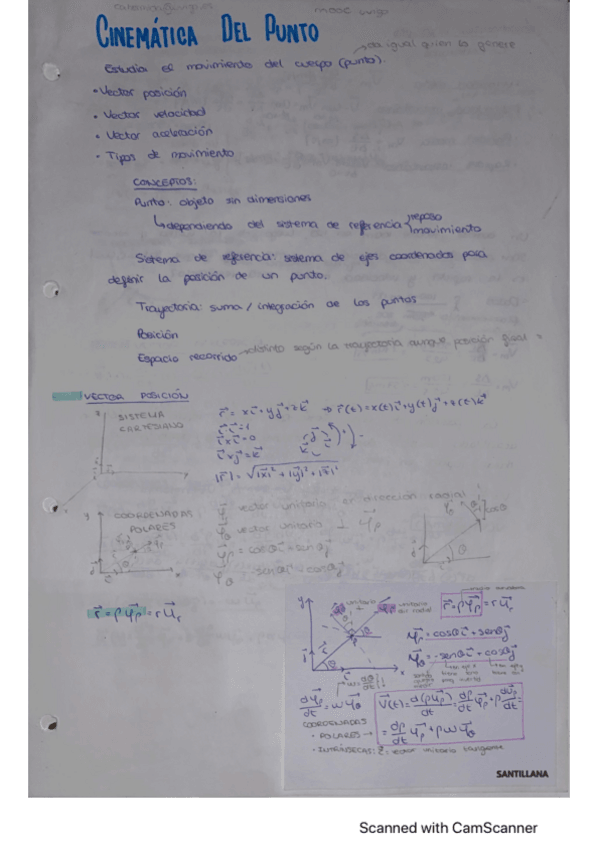 CINEMÁTICA DEL PUNTO
da igual quien lo genere
Estudia el movimiento del cuerpo (punto).
• Vector posición
• Vector velocidad
• Vector aceleración
• Tipos de movimiento
CONCEPTOS:
Punto: objeto sin dimensiones
↳ dependiendo del sistema de referencia { reposo
movimiento
Sistema de referencia: sistema de ejes coordenados para
definir la posición de un punto.
Trayectoria: suma / integración de los puntos
Posición
Espacio recorrido → distinto según la trayectoria aunque posición final =
VECTOR POSICIÓN
SISTEMA
CARTESIANO
r⃗ = xi⃗ + yj⃗ + zk⃗ ⇒ r⃗(t) = x(t)i⃗ + y(t)j⃗ + z(t)k⃗
i⃗·i⃗ = 1
i⃗ x i⃗ = 0
i⃗ x j⃗ = k⃗
|r⃗| = √|x⃗|² + |y⃗|² + |z⃗|²
COORDENADAS
POLARES
vector unitario en dirección radial
vector unitario ⊥ u⃗ρ
u⃗ρ = cosθi⃗ + senθj⃗
u⃗θ = -senθi⃗ + cosθj⃗
r⃗ = ρu⃗ρ = ru⃗r
unitario
unitario
dir radial
r⃗ = ρu⃗ρ = ru⃗r
u⃗ρ = cosθi⃗ + senθj⃗
u⃗θ = -senθi⃗ + cosθj⃗
w = dθ/dt
du⃗ρ/dt = wu⃗θ
V⃗(t) = d(ρu⃗ρ)/dt = dρ/dt u⃗ρ + ρ du⃗ρ/dt =
= dρ/dt u⃗ρ + ρwu⃗θ
COORDENADAS
• POLARES →
• INTRÍNSECAS: τ⃗ = vector unitario tangente
SANTILLANA
Scanned with CamScanner